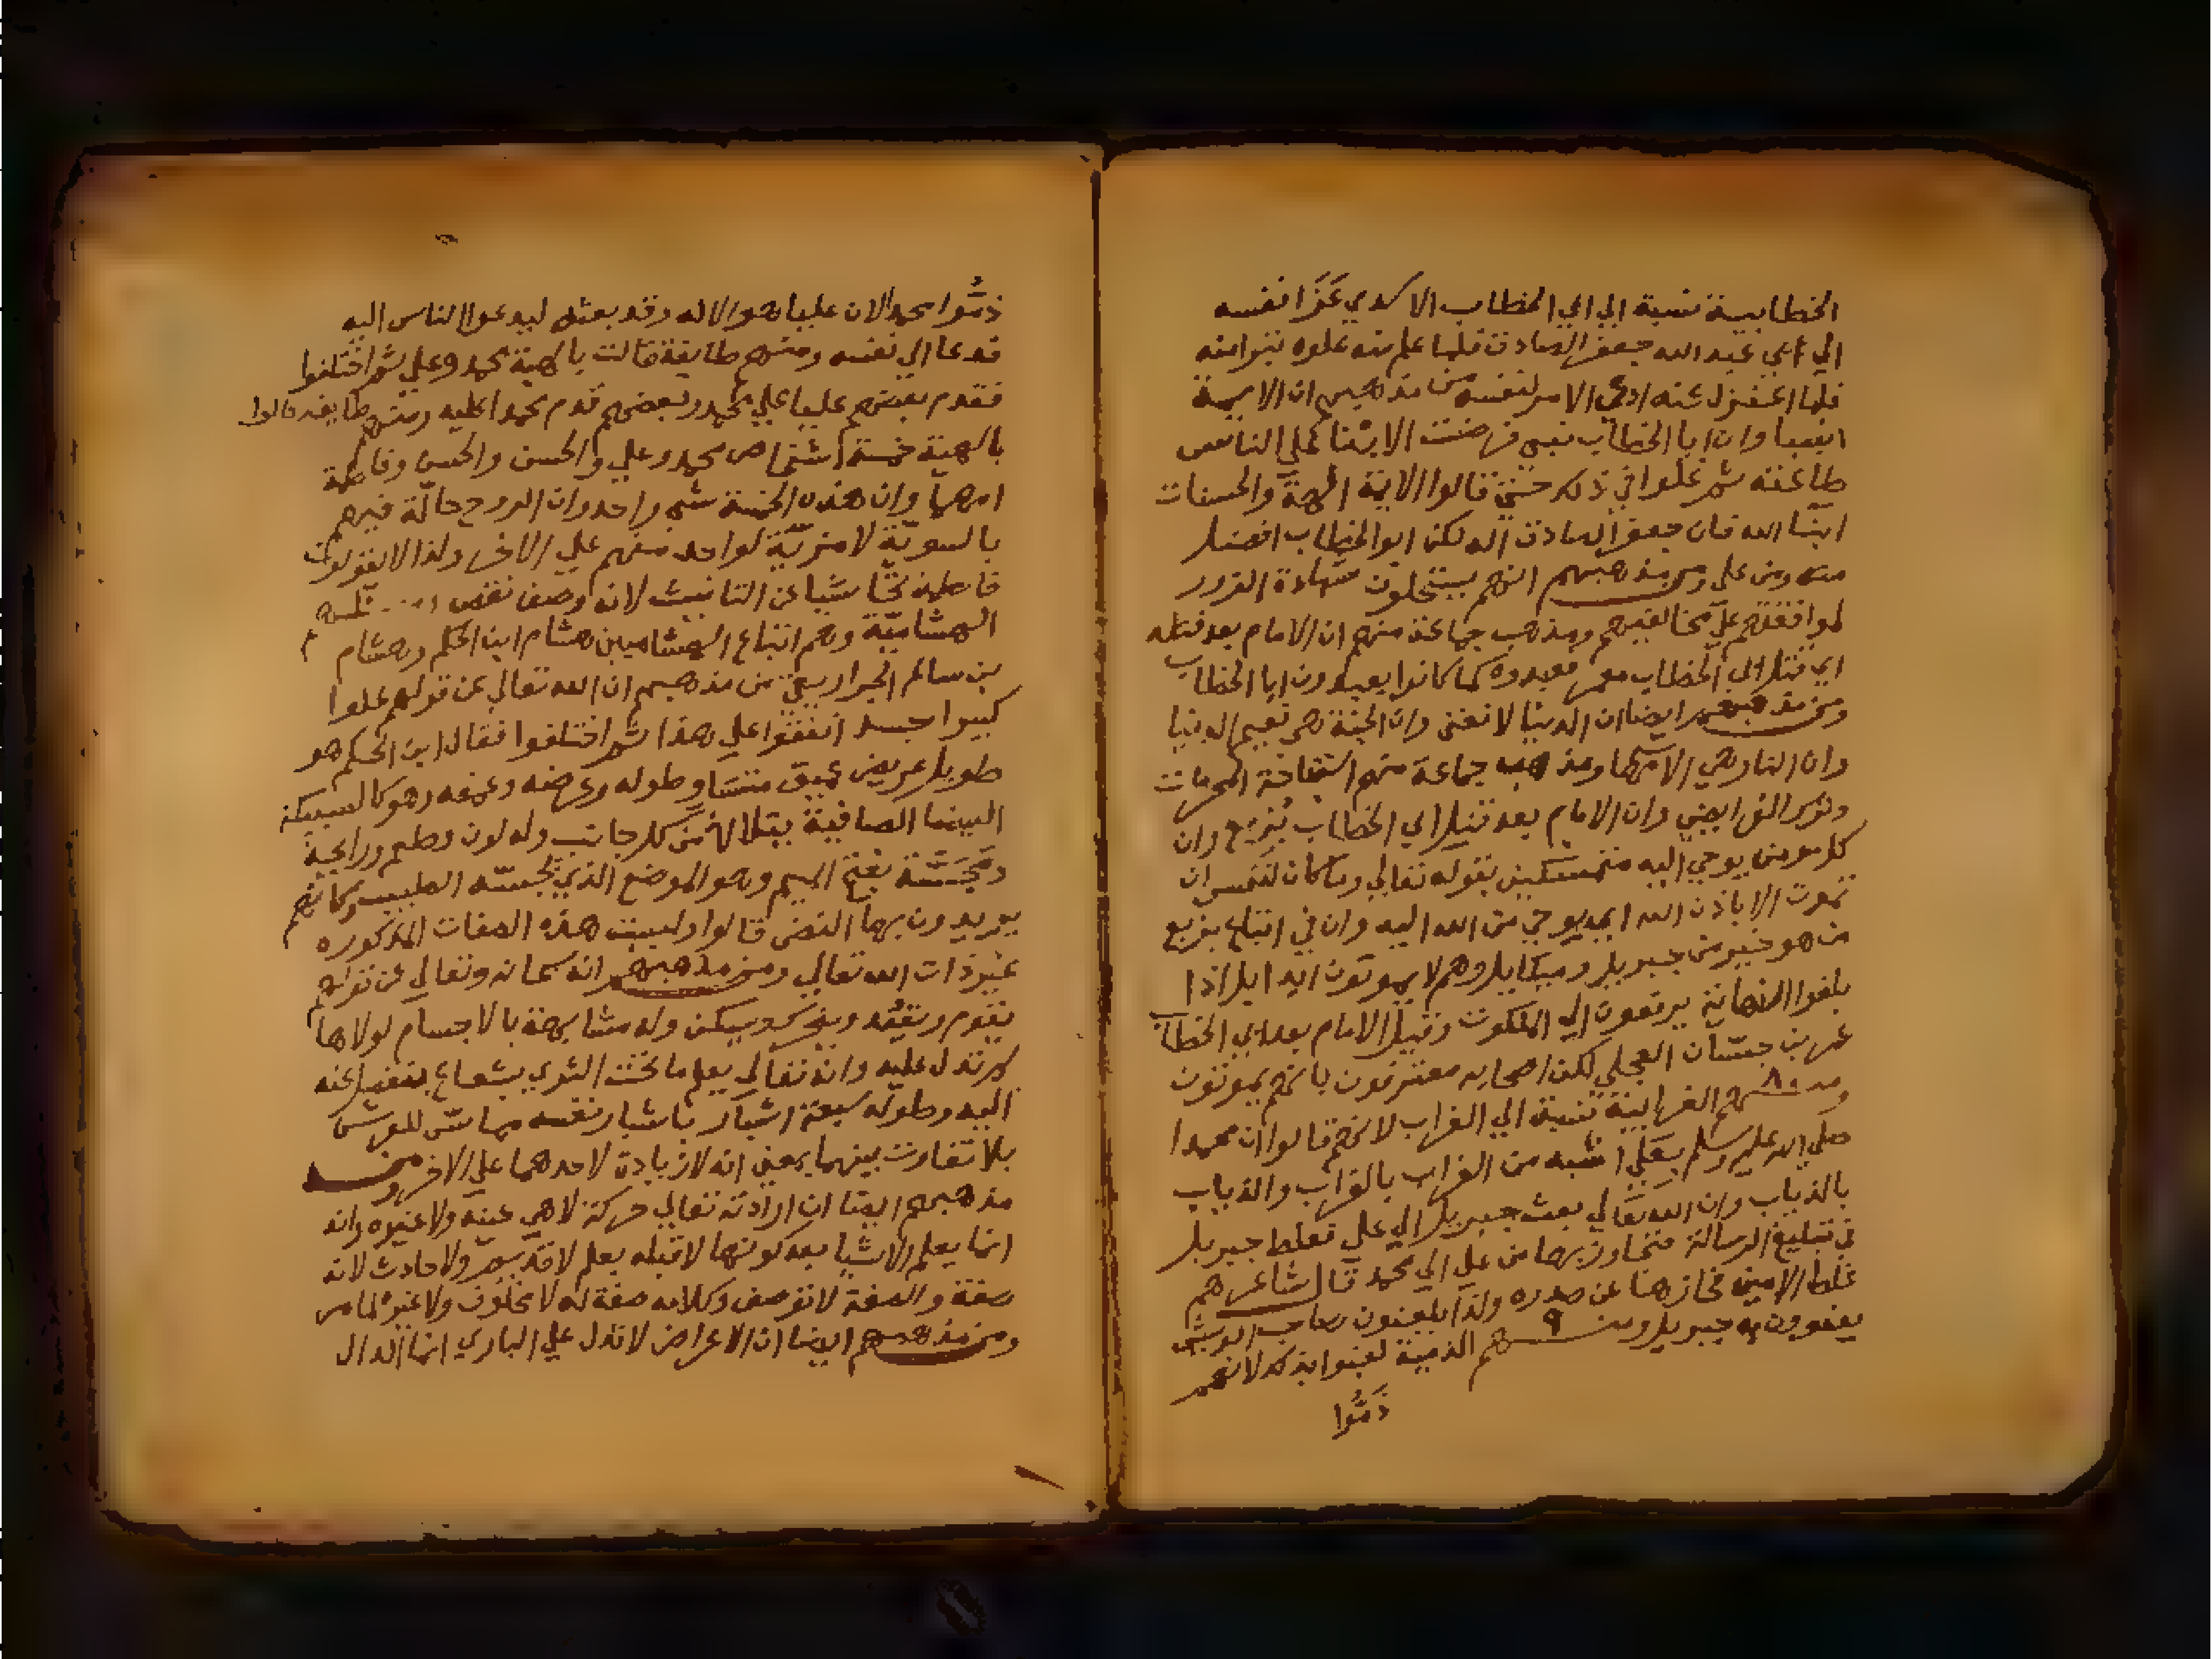 الخطابية نسبة الي ابي الخطاب الاسدي عَزَا نفسه
الي ابي عبد الله جعفر الصادق فلما علم منه غلوه تبرا منه
فلما اعتزل عنه ادعي الامر لنفسه من مذهبهم ان الايمة
انبيا وان ابا الخطاب نبي فرضت الانبيا علي الناس
طاعته ثم غلوا في ذلك حتي قالوا الايمة الهة والحسنان
ابنا الله فان جعفر الصادق اله لكن ابو الخطاب افضل
منه ومن علي ومن مذهبهم انهم يستحلون شهادة الزور
لموافقهم علي مخالفيهم ومذهب جماعة منهم ان الامام بعد قتله
اي قتل ابي الخطاب معمر فعبدوه كما كانوا يعبدون ابا الخطاب
ومن مذهبهم ايضا ان الدنيا لا تفني وان الجنة هي نعيم الدنيا
وان النار هي الامها ومذهب جماعة منهم استباحة المحرمات
وترك الفرايض وان الامام بعد قتل ابي الخطاب بزيع وان
كل مومن يوحي اليه متمسكين بقوله تعالي وما كان لنفس ان
تموت الا باذن الله اي بوحي من الله اليه وان في اتباع بزيع
من هو خير من جبريل وميكايل وهم لا يموتون ابدا بل اذا
بلغوا النهاية يرفعون الي الملكوت وقيل الامام بعد ابي الخطاب
عمر بن العجلي لكن اصحابه معترفون بانهم يموتون
ومنهم ٨ الغرابية نسبة الي الغراب لانهم قالوا ان محمدا
صلي الله عليه وسلم بعلي اشبه من الغراب بالغراب والذباب
بالذباب وان الله تعالي بعث جبريل الي علي فغلط جبريل
في تبليغ الرسالة فتجاوز بها من علي الي محمد قال شاعرهم
غلط الامين فجازها عن صدره ولذا يلعنون صاحب الريش
يعنون به جبريل ومنهم ٩ الذمية لقبوا بذلك لانهم
ذَمُّوا
ذمُّوا محمدا لان عليا هو الاله وقد بعثه ليدعوا الناس اليه
فدعا الي نفسه ومنهم طايفة قالت بالهية محمد وعلي ثم اختلفوا
فقدم بعضهم عليا علي محمد وبعضهم قدم محمدا عليه ومنهم طايفة قالوا
بالهية خمسة اشخاص محمد وعلي والحسن والحسين وفاطمة
وان هذه الخمسة شي واحد وان الروح حالّة فيهم
بالسويّة لا مزيّة لواحد منهم علي الاخر ولذا لا يقولون
فاطمة تحاشيا عن التانيث لانه وصف نقص ومنهم
الهشاميّة وهم اتباع الهشاميين هشام ابن الحكم وهشام
بن سالم من مذهبهم ان الله تعالي عن قولهم علوا
كبيرا جسد اتفقوا علي هذا ثم اختلفوا فقال ابن الحكم هو
طويل عريض عميق متساو طوله وعرضه وعمقه وهو كالسبيكة
البيضا الصافية يتلالا من كل جانب وله لون وطعم ورايحة
ومَجَسَّة بفتح الميم وهو الموضع الذي يجسه الطبيب وكانهم
يريدون بها النبض قالوا وليست هذه الصفات المذكوره
غير ذات الله تعالي ومن مذهبهم انه سبحانه وتعالي عن قولهم
يقوم ويقعد ويتحرك ويسكن وله مشابهة بالاجسام لولاها
لم تدل عليه وانه تعالي يعلم ما تحت الثري بشعاع ينفصل عنه
اليه وطوله سبعة اشبار باشبار نفسه مماس للعرش
بلا تفاوت بينهما بمعني انه لا زيادة لاحدهما علي الاخر ومن
مذهبهم ايضا ان ارادته تعالي حركة لا هي عينه ولا غيره وانه
انما يعلم الاشيا بعد كونها لا قبله بعلم لا قديم ولا حادث لانه
صفة والصفة لا توصف وكلامه صفة له لا مخلوق ولا غيره لما مر
ومن مذهبهم ايضا ان الاعراض لا تدل علي الباري انما الدال